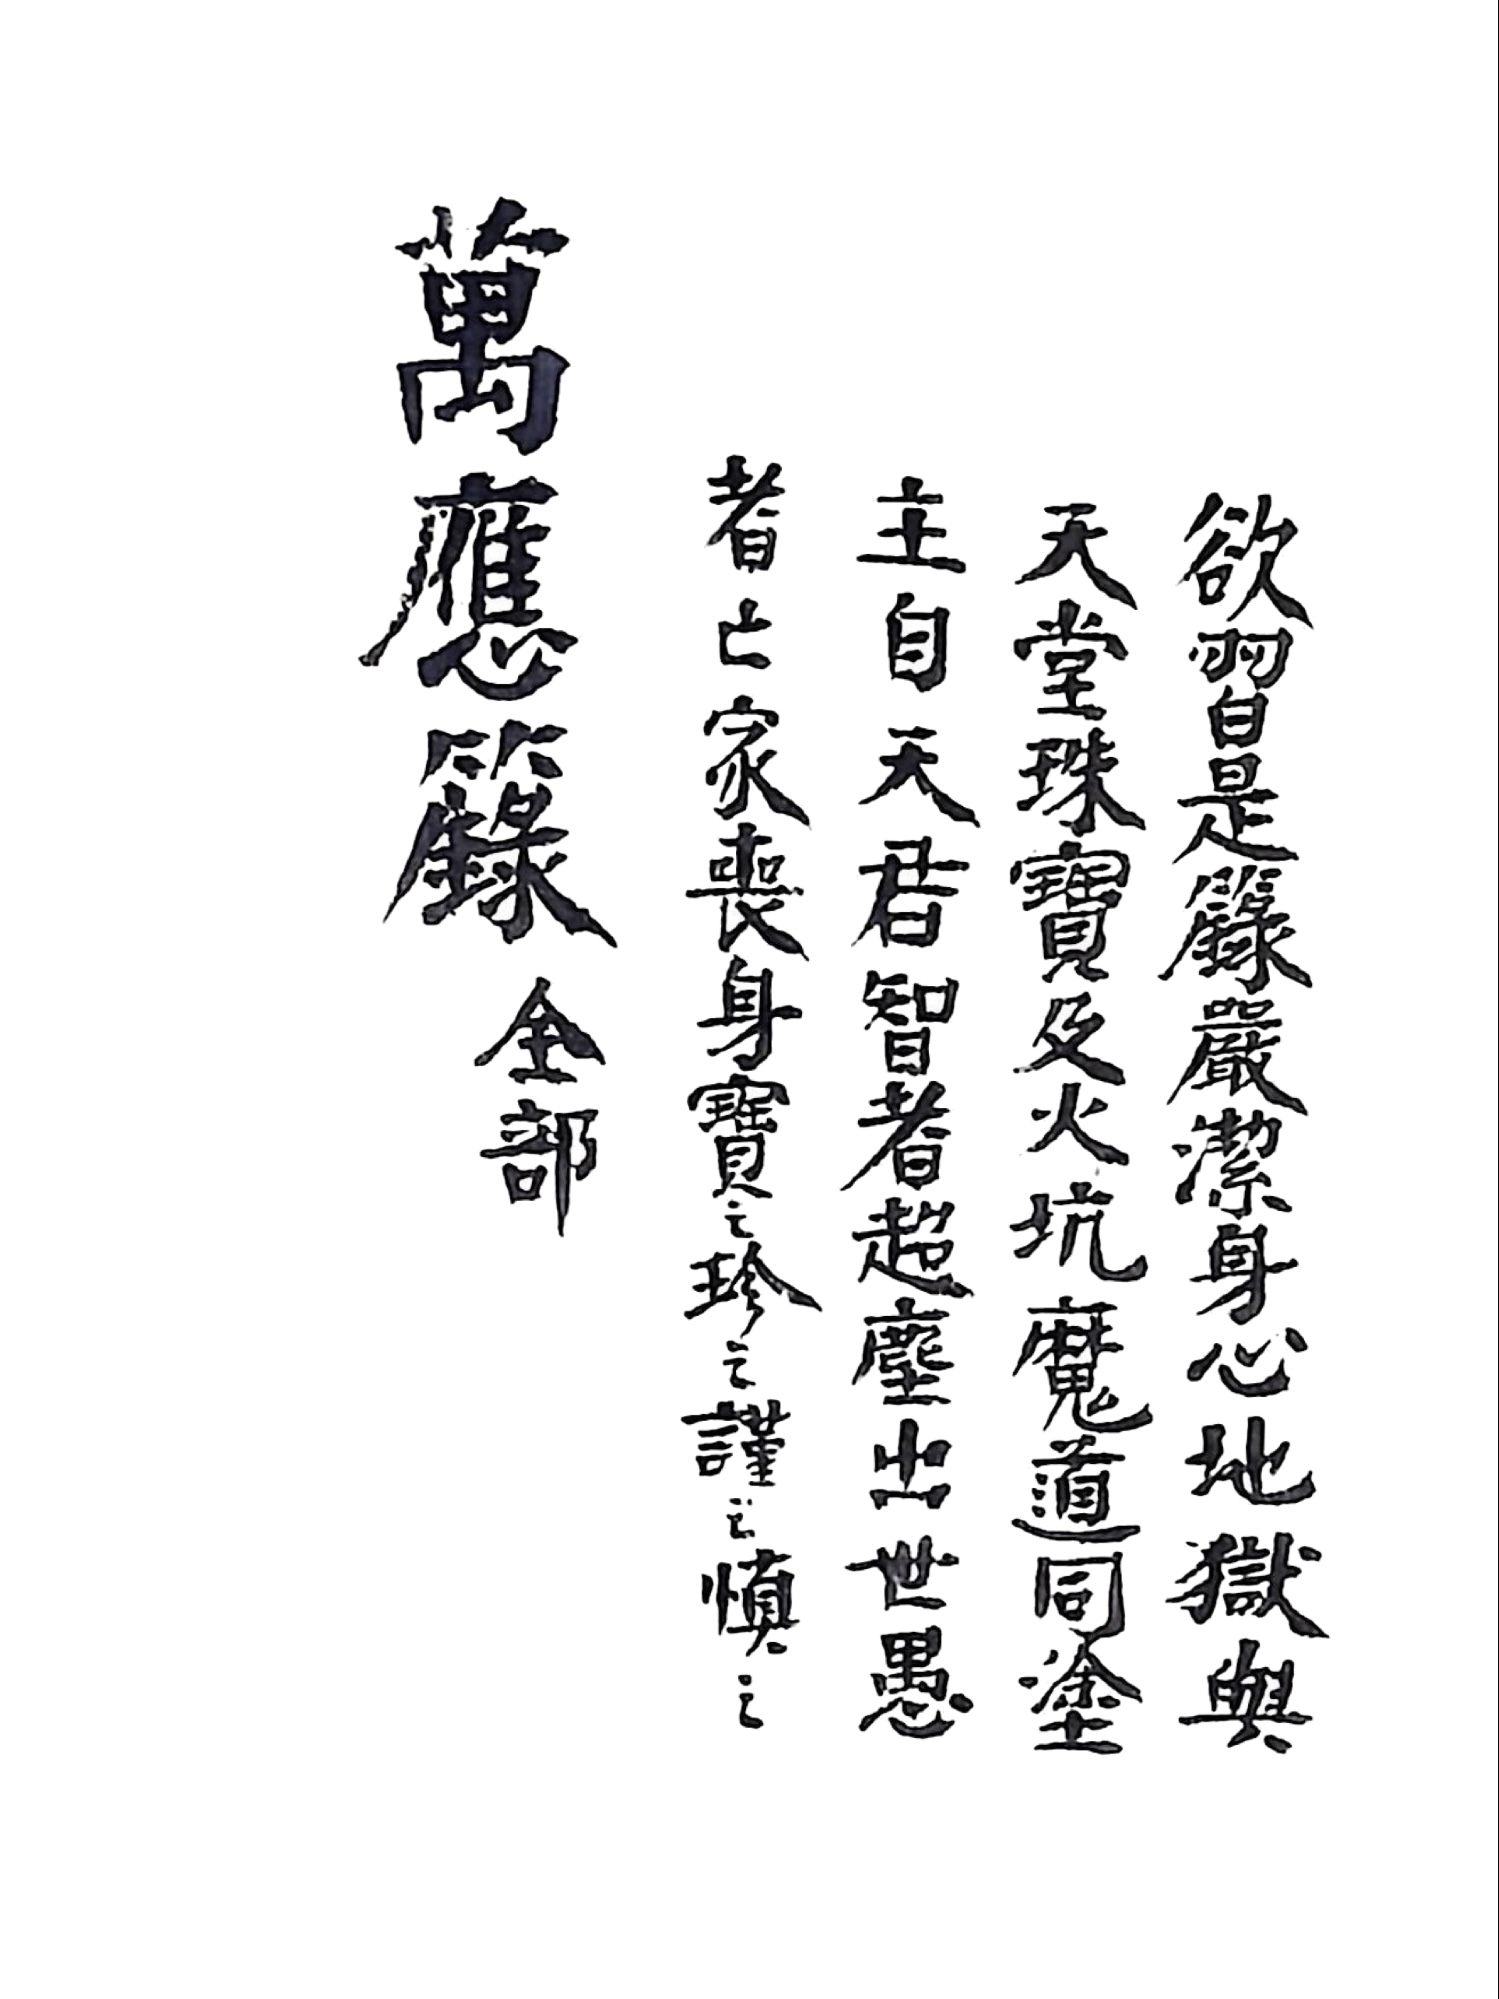 欲習是籙嚴潔身心地獄與
天堂珠寶及火坑魔道同塗
主自天君智者超塵出世愚
者亡家喪身寶之珍之謹之慎之
萬應籙全部